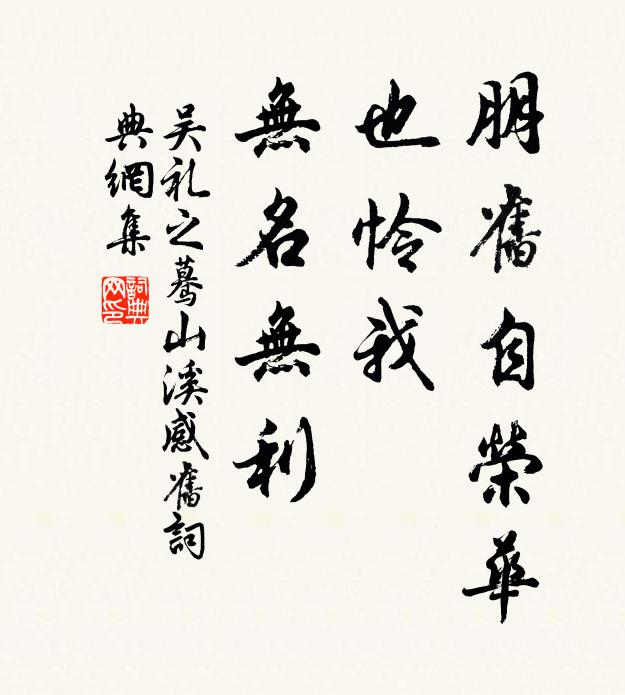 朋舊自榮華
也怜我
無名無利
吴礼之蓦山溪感舊詞
典網集
詞典网印